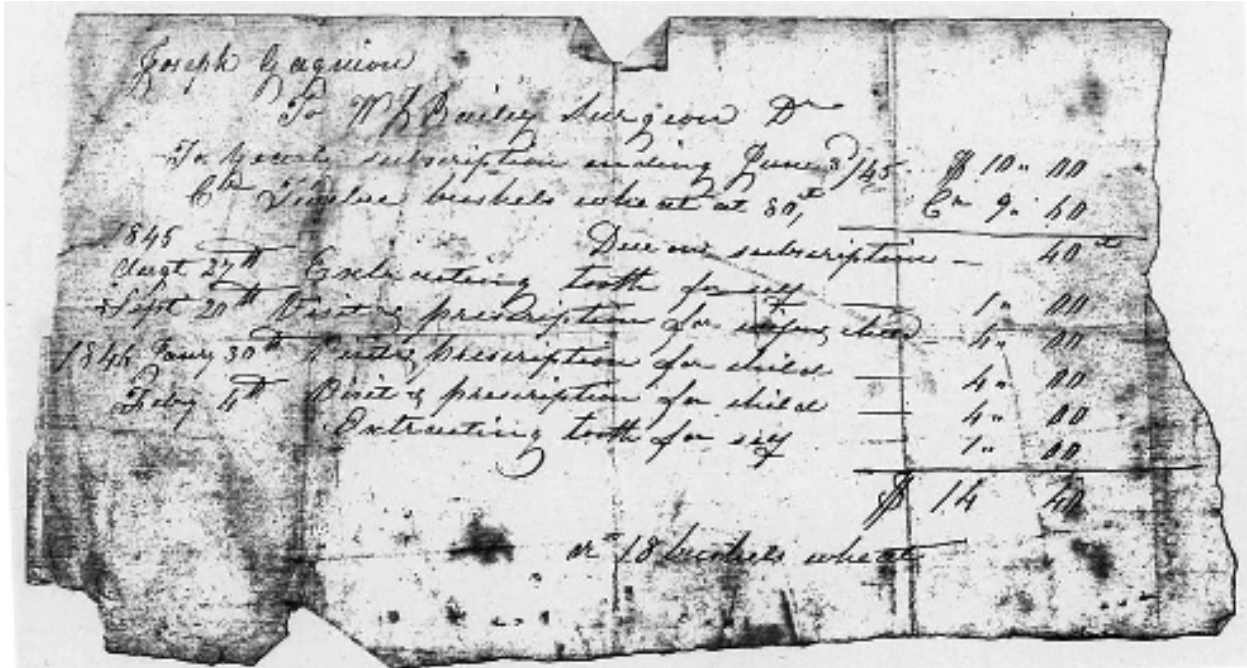 Joseph Gagnion
To W J Bailey Surgeon Dr
To Yearly subscription ending June 3d/45 $ 10.. 00
Cr Twelve bushels wheat at 80ct Cr 9.. 60
1845 Due on subscription — 40ct
Augt 27th Extracting tooth for self — 1.. 00
Sept 20th Visit & prescription for wife & child 4.. 00
1846 Jany 30th Visit & prescription for child — 4.. 00
Feby 4th Visit & prescription for child — 4.. 00
Extracting tooth for self — 1.. 00
$ 14 40
or 18 bushels wheat